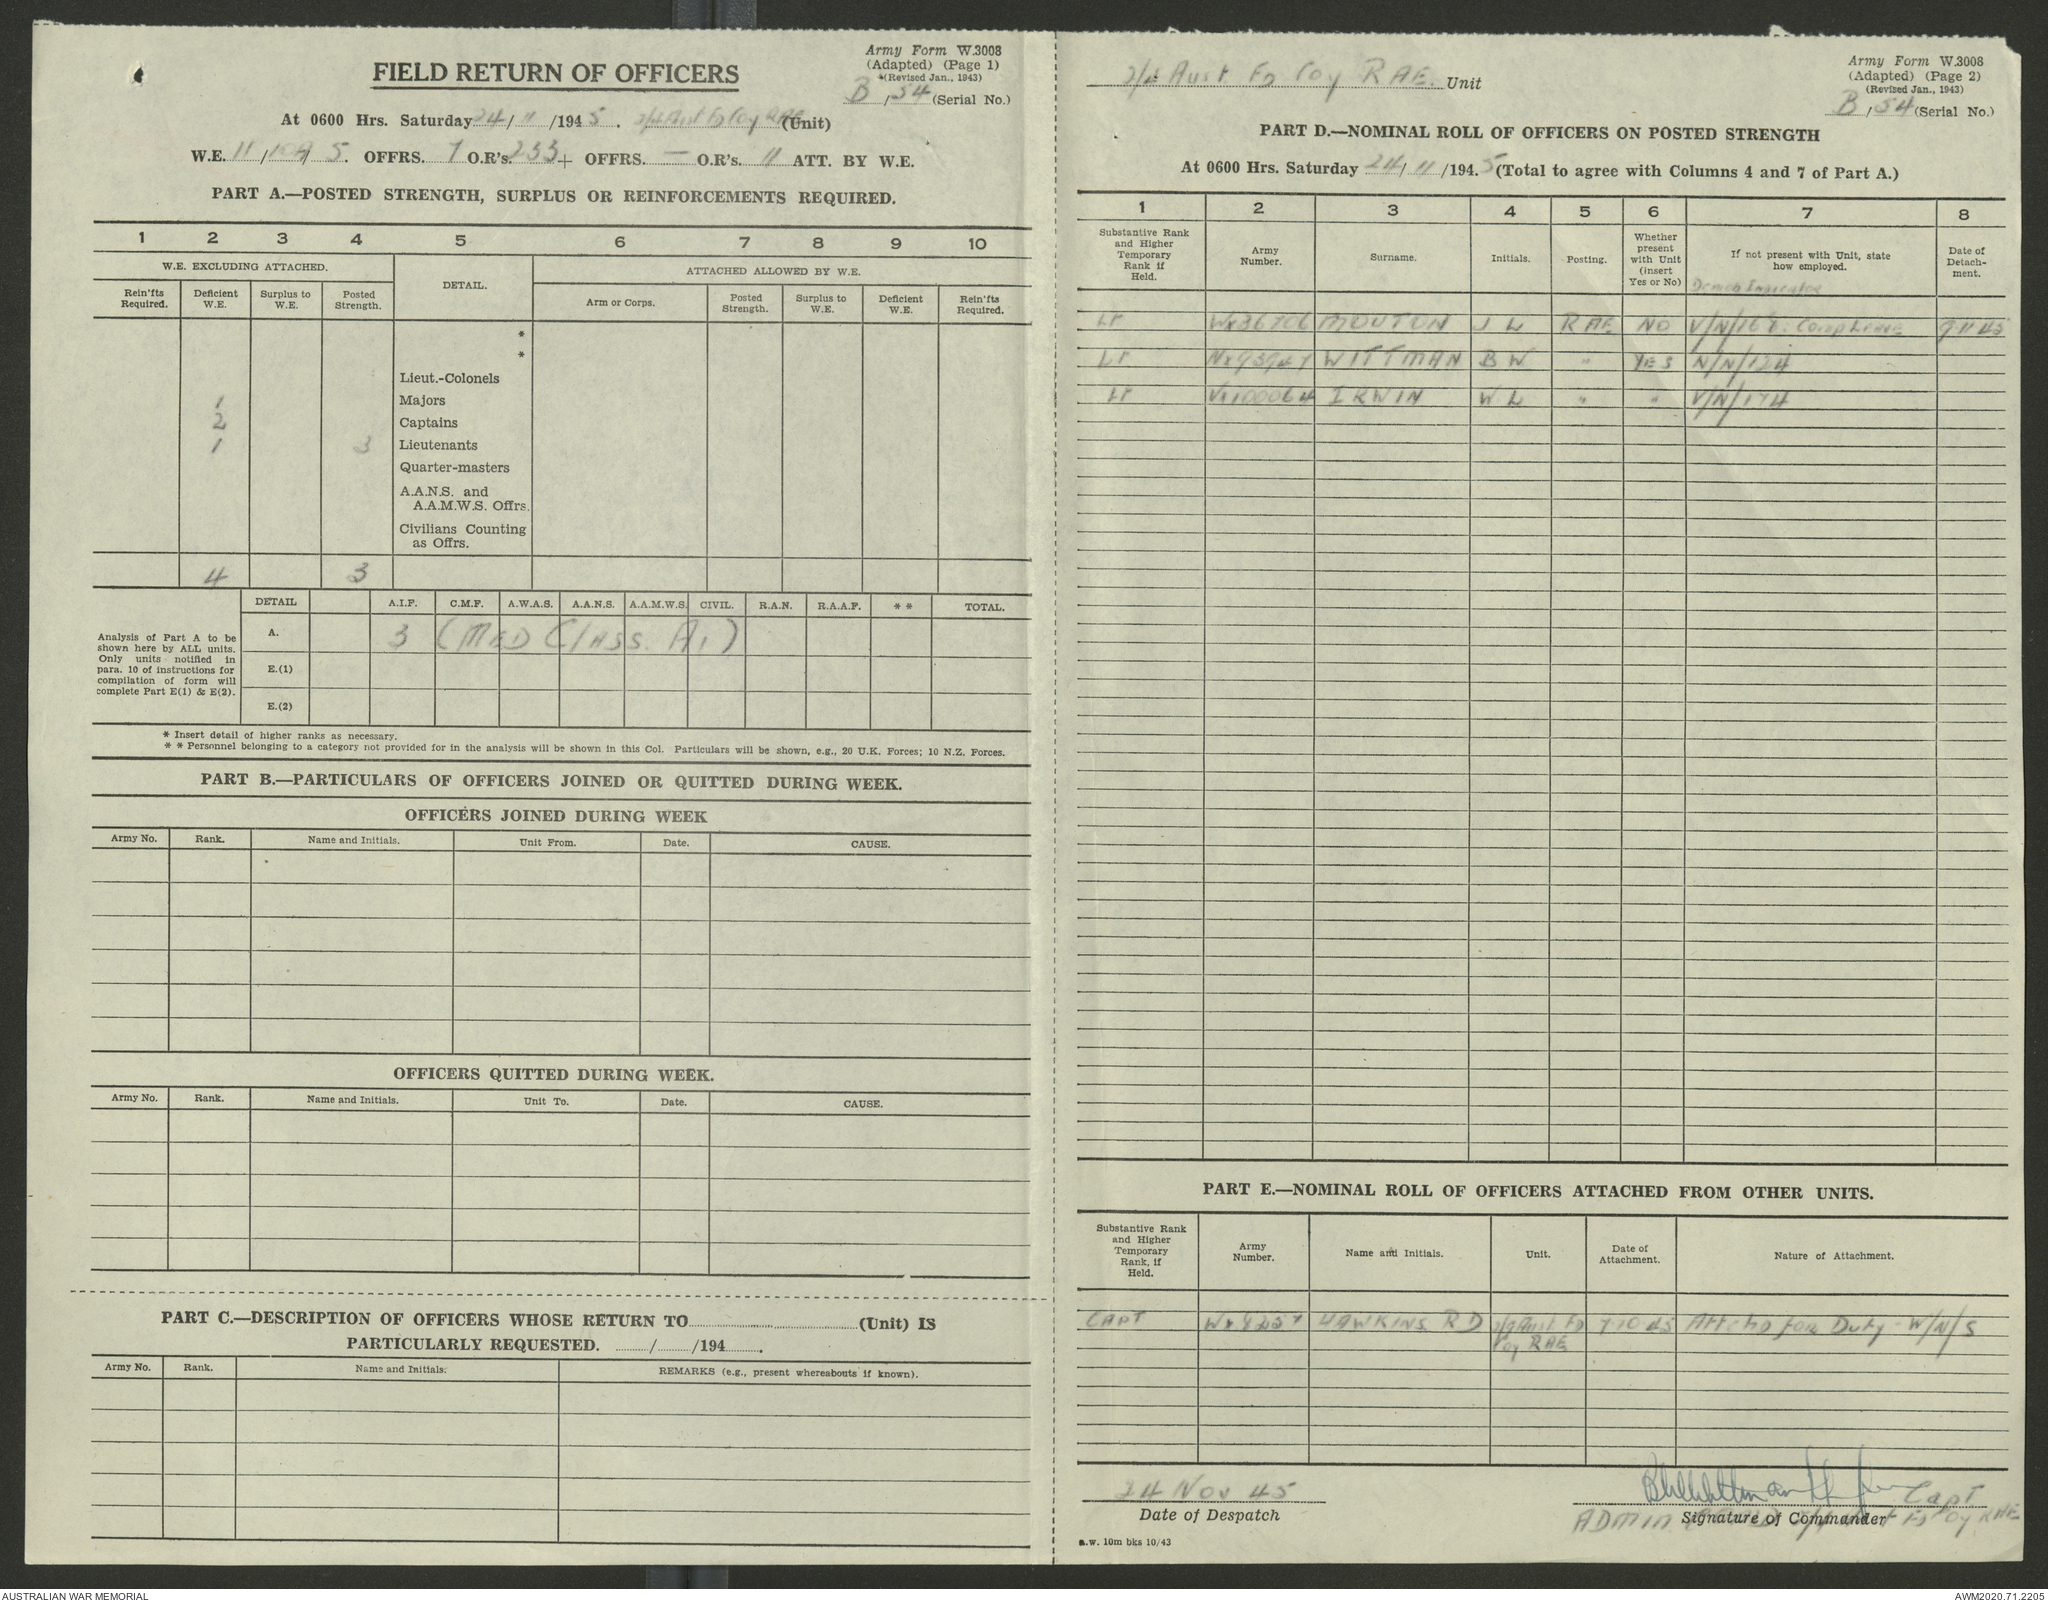 Army Form W.3008
(Adapted) (Page 1)
(Revised Jan., 1943)
FIELD RETURN OF OFFICERS
B/54 (Serial No.)
At 0600 Hrs. Saturday 24/11/1945. 2/4 Aust Fd Coy RAE (Unit)
W.E. 11/109/5. OFFRS. 7 O.R's. 233 + OFFRS. — O.R's. 11 ATT. BY W.E.
PART A.—POSTED STRENGTH, SURPLUS OR REINFORCEMENTS REQUIRED.
1 2 3 4 5 6 7 8 9 10
W.E. EXCLUDING ATTACHED. DETAIL. ATTACHED ALLOWED BY W.E.
Rein'fts Required. Deficient W.E. Surplus to W.E. Posted Strength. Arm or Corps. Posted Strength. Surplus to W.E. Deficient W.E. Rein'fts Required.
*
*
Lieut.-Colonels
1 Majors
2 Captains
1 3 Lieutenants
Quarter-masters
A.A.N.S. and
A.A.M.W.S. Offrs.
Civilians Counting
as Offrs.
4 3
DETAIL A.I.F. C.M.F. A.W.A.S. A.A.N.S. A.A.M.W.S. CIVIL. R.A.N. R.A.A.F. * * TOTAL.
Analysis of Part A to be
shown here by ALL units.
Only units notified in
para. 10 of instructions for
compilation of form will
complete Part E(1) & E(2).
A. 3 (MED Class. A1)
E.(1)
E.(2)
* Insert detail of higher ranks as necessary.
* * Personnel belonging to a category not provided for in the analysis will be shown in this Col. Particulars will be shown, e.g., 20 U.K. Forces; 10 N.Z. Forces.
PART B.—PARTICULARS OF OFFICERS JOINED OR QUITTED DURING WEEK.
OFFICERS JOINED DURING WEEK
Army No. Rank. Name and Initials. Unit From. Date. CAUSE.
OFFICERS QUITTED DURING WEEK.
Army No. Rank. Name and Initials. Unit To. Date. CAUSE.
PART C.—DESCRIPTION OF OFFICERS WHOSE RETURN TO (Unit) IS
PARTICULARLY REQUESTED. / /194 .
Army No. Rank. Name and Initials. REMARKS (e.g., present whereabouts if known).
Army Form W.3008
(Adapted) (Page 2)
(Revised Jan., 1943)
2/4 Aust Fd Coy RAE. Unit
B/54 (Serial No.)
PART D.—NOMINAL ROLL OF OFFICERS ON POSTED STRENGTH
At 0600 Hrs. Saturday 24/11/1945 (Total to agree with Columns 4 and 7 of Part A.)
1 2 3 4 5 6 7 8
Substantive Rank and Higher Temporary Rank if Held. Army Number. Surname. Initials. Posting. Whether present with Unit (insert Yes or No) If not present with Unit, state how employed. Date of Detachment.
Demob Indicator
Lt Wx36706 MOUTON J L RAE NO V/N/168. Comp Leave 9.11.45
Lt Nx93947 WITTMAN B W " YES N/N/124
Lt Vx100064 IRWIN W L " " V/N/174
PART E.—NOMINAL ROLL OF OFFICERS ATTACHED FROM OTHER UNITS.
Substantive Rank and Higher Temporary Rank, if Held. Army Number. Name and Initials. Unit. Date of Attachment. Nature of Attachment.
CAPT HAWKINS R D 2/9 Aust Fd 7-10-45 Attchd for Duty - W/N/S
Coy RAE
24 Nov 45 Capt
Date of Despatch Signature of Commander
ADMIN Fd Coy RAE
a.w. 10m bks 10/43
AUSTRALIAN WAR MEMORIAL AWM2020.71.2205